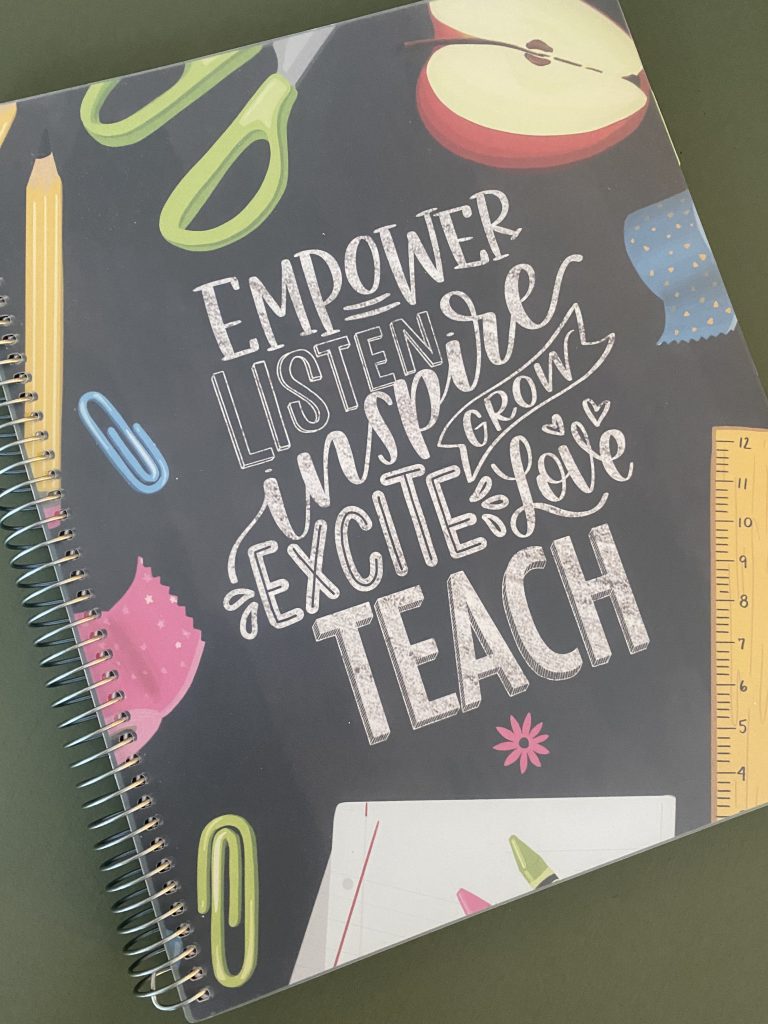 EMPOWER
LISTEN
inspire
GROW
EXCITE
Love
TEACH
12
11
10
9
8
7
6
5
4